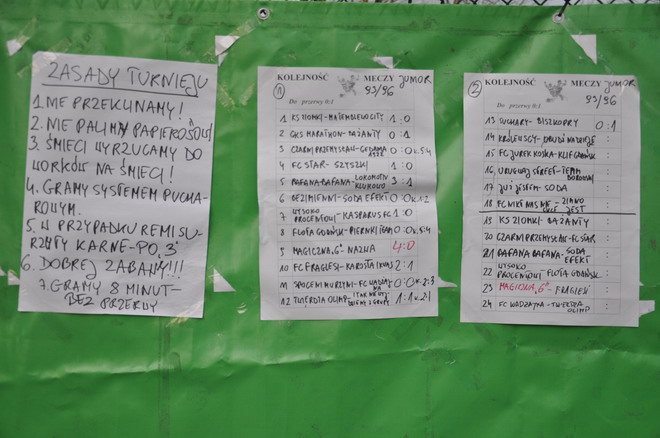 ZASADY TURNIEJU
1. NIE PRZEKLINAMY!
2. NIE PALIMY PAPIEROSÓW!
3. ŚMIECI WYRZUCAMY DO
WORKÓW NA ŚMIECI!
4. GRAMY SYSTEMEM PUCHA-
ROWYM.
5. W PRZYPADKU REMISU-
RZUTY KARNE-PO 3
6. DOBREJ ZABAWY!!!
7. GRAMY 8 MINUT-
BEZ PRZERWY
1 KOLEJNOŚĆ MECZY JUNIOR
Do przerwy 0:1 93/96
1 KS ZIOMKI-MATEMBLEWO CITY 1:0
2 GKS MARATHON-BAŻANTY 0:1
3 CZARNI PRZEMYSŁAW-GEDANIA 0:0 k.5:4
4 FC STAR-SZYSZKI 1:0
5 BAFANA-BAFANA-LOKOMOTIV KLUKOWO 3:1
6 BEZIMIENNI-SODA EFEKT 0:0 k.
7 WYSOKO PROCENTOWI-KASPARUS FC 1:0
8 FLOTA GDAŃSK-PIERNIKI 0:0 k.5:4
9 MAGICZNA "6"-NAZWA 4:0
10 FC FRAGLESI-KAROTKA 2:1
11 SPOCENI MURZYNI-FC 0:0 k.2:3
12 TWIERDZA OLIMP- 1:1 k.2:1
2 KOLEJNOŚĆ MECZY JUNIOR
Do przerwy 0:1 93/96
13 SUCHARY-BISZKOPTY 0:1
14 KRÓLEWSCY-
15 FC JUREK KOSKA-KLIF GDAŃSK :
16 URUGWAJ STREET-TEAM :
17 JUŻ JESTEM-SODA :
18 FC MIKI MASNE-ZIANO :
19 KS ZIOMKI-BAŻANTY :
20 CZARNI PRZEMYSŁAW-FC STAR :
21 BAFANA BAFANA-SODA EFEKT :
22 WYSOKO PROCENTOWI-FLOTA GDAŃSK :
23 MAGICZNA "6"-FRAGLESI :
24 FC WODZATKA-TWIERDZA OLIMP :